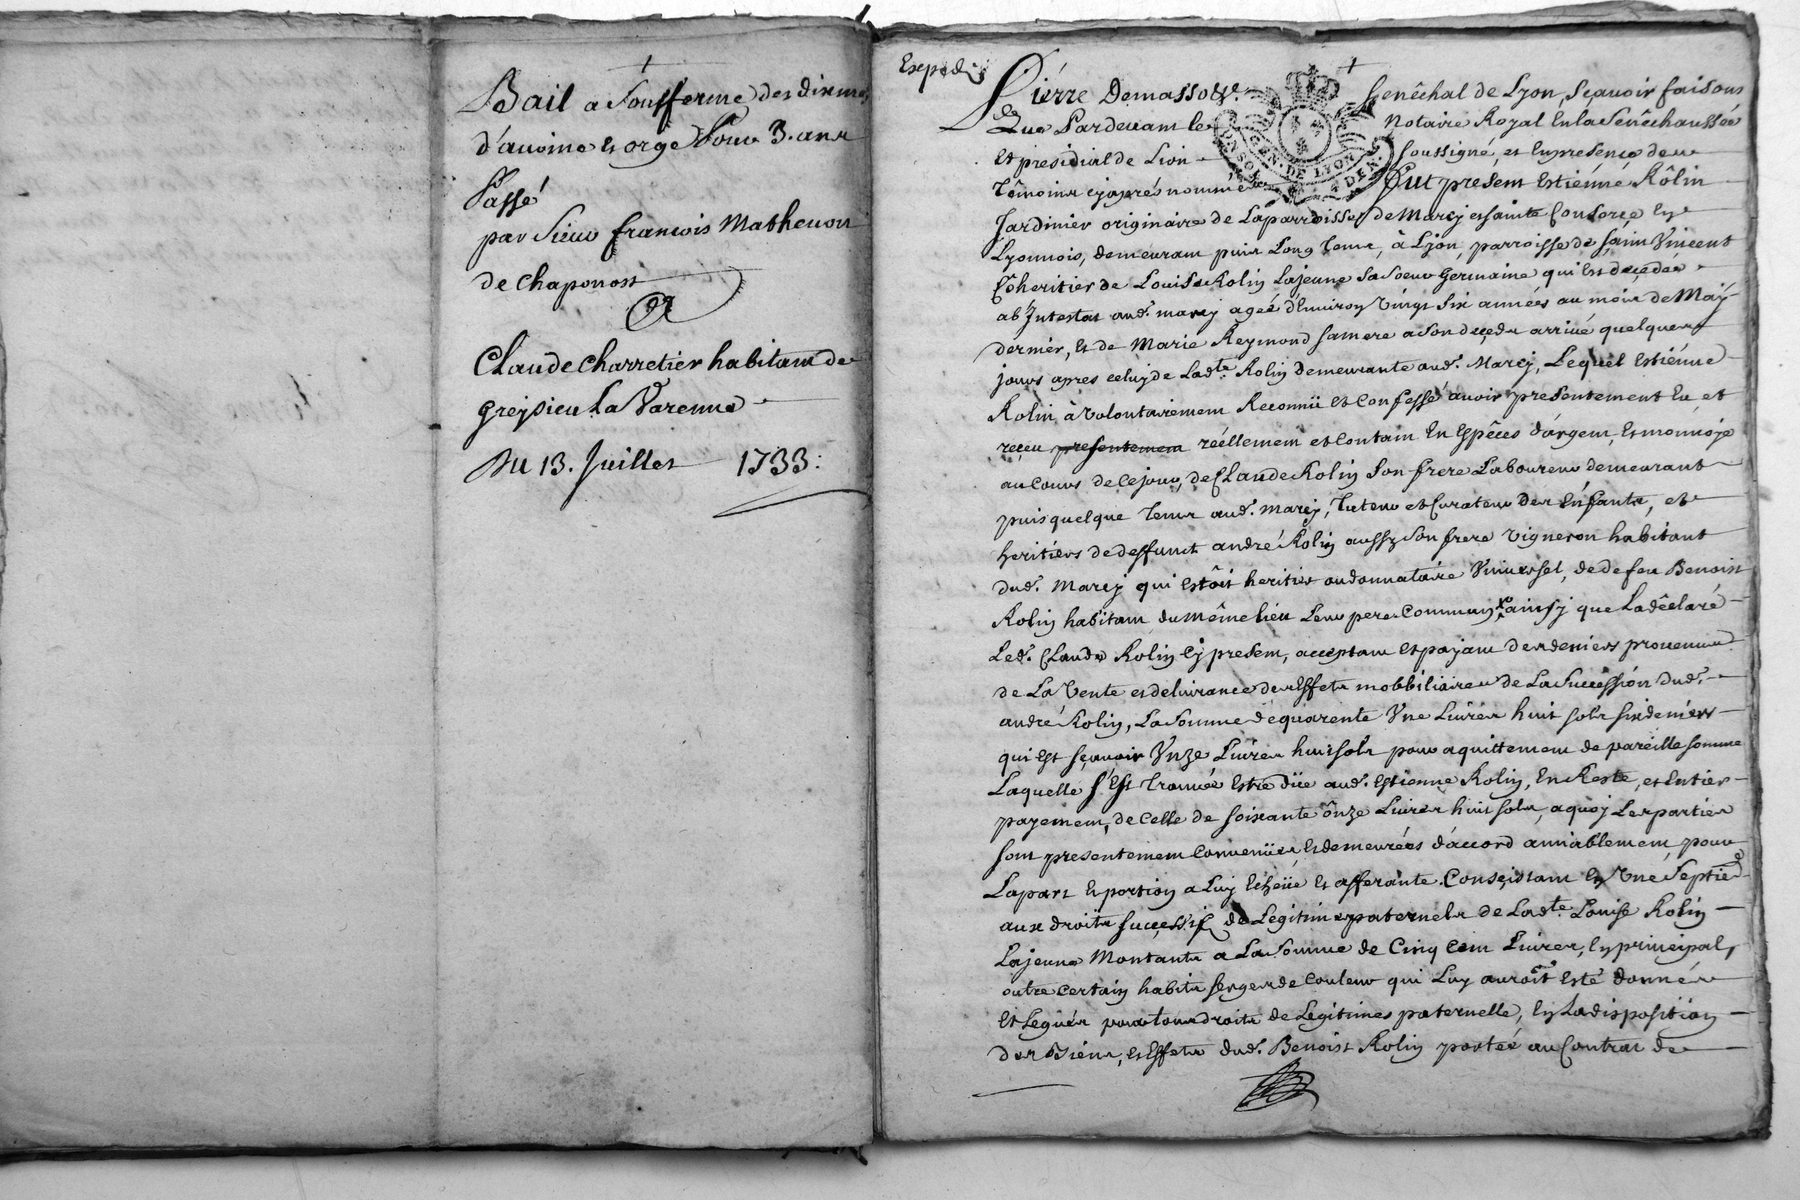 Bail a Soufferme des dixmes
d'avoine et orge Pour 3. ans
Passé
par Sieur francois Mathevon
de chaponost
A
Claude Charretier habitant de
Greysieu La Varenne
Du 13. Juillet 1733:
Exped.
Piérre Demassove. Senêchal de Lyon, Sçavoir faisons
Que Pardevant le Notaire Royal En la Senêchaussée
Et presidial de Lion soussigné, et En presence des
Témoins cy aprés nommés Fut present Estiénne Rôlin
Jardinier originaire de La parroisse de Marcy et sainte Consorce En
Lyonnois, demeurant puis Long Tems, à Lyon, parroisse de saint Vincent
Cohéritier de Louise Rolin Lajeune Sa Soeur Germaine qui Est decedée
ab Jntestat aud. marcy agée d'Environ Vingt Six années au mois de May
dernier, Et de Marie Reymond Sa mere a Son deceds arrivé quelques
jours apres celuy de Ladte. Rolin demeurante aud. Marcy, Lequel Estiénne
Rolin à Volontairement Reconnü Et Confessé avoir presentement Eu et
reçeu presentement réëllement et Contant En Espêces d'argent, Et monnoye
au Cours de Ce jour, de Claude Rolin Son frere Laboureur demeurant
puis quelque Tems aud. Marcy, Tuteur et Curateur Des Enfants, et
heritiers de deffunct andré Rolin aussy Son frere Vigneron habitant
dud. Marcy qui Estôit heritier ou donnataire Vniversel, de defeu Benoist
Rolin habitant du Même lieu Leur pere Commun ainsy que La dêclaré
Led. Claude Rolin Cy present, acceptant Et payant des deniers provenus
de La Vente et delivrance des Effets mobbiliaires de La Succession dud.
andré Rolin, La Somme de quarente Vne Livres huit sols six deniers
qui Est sçavoir Vnze Livres huit sols pour aquittement de pareille somme
Laquelle s'Est Trouvée Estre düe aud. Estienne Rolin, En Reste, et Entier
payement, de Celle de soixante ônze Livres huit sols, a quoy Les parties
sont presentement Convenües Et demeurées d'accord amiablement, pour
La part Et portion a Luy Echëüe Et afferante Consistant En Vne Septie.
aux droits successifs de Legitimes paternels de Ladte. Louise Rolin
Lajeune Montants a La Somme de Cinq Cent Livres, En principal,
outre Certain habits serge de Couleur qui Luy auroit Esté donnés
Et Legués pour tous droits de Legitimes paternelle, En La disposition
des Biens, et Effets dud. Benoist Rolin portée au Contrat de